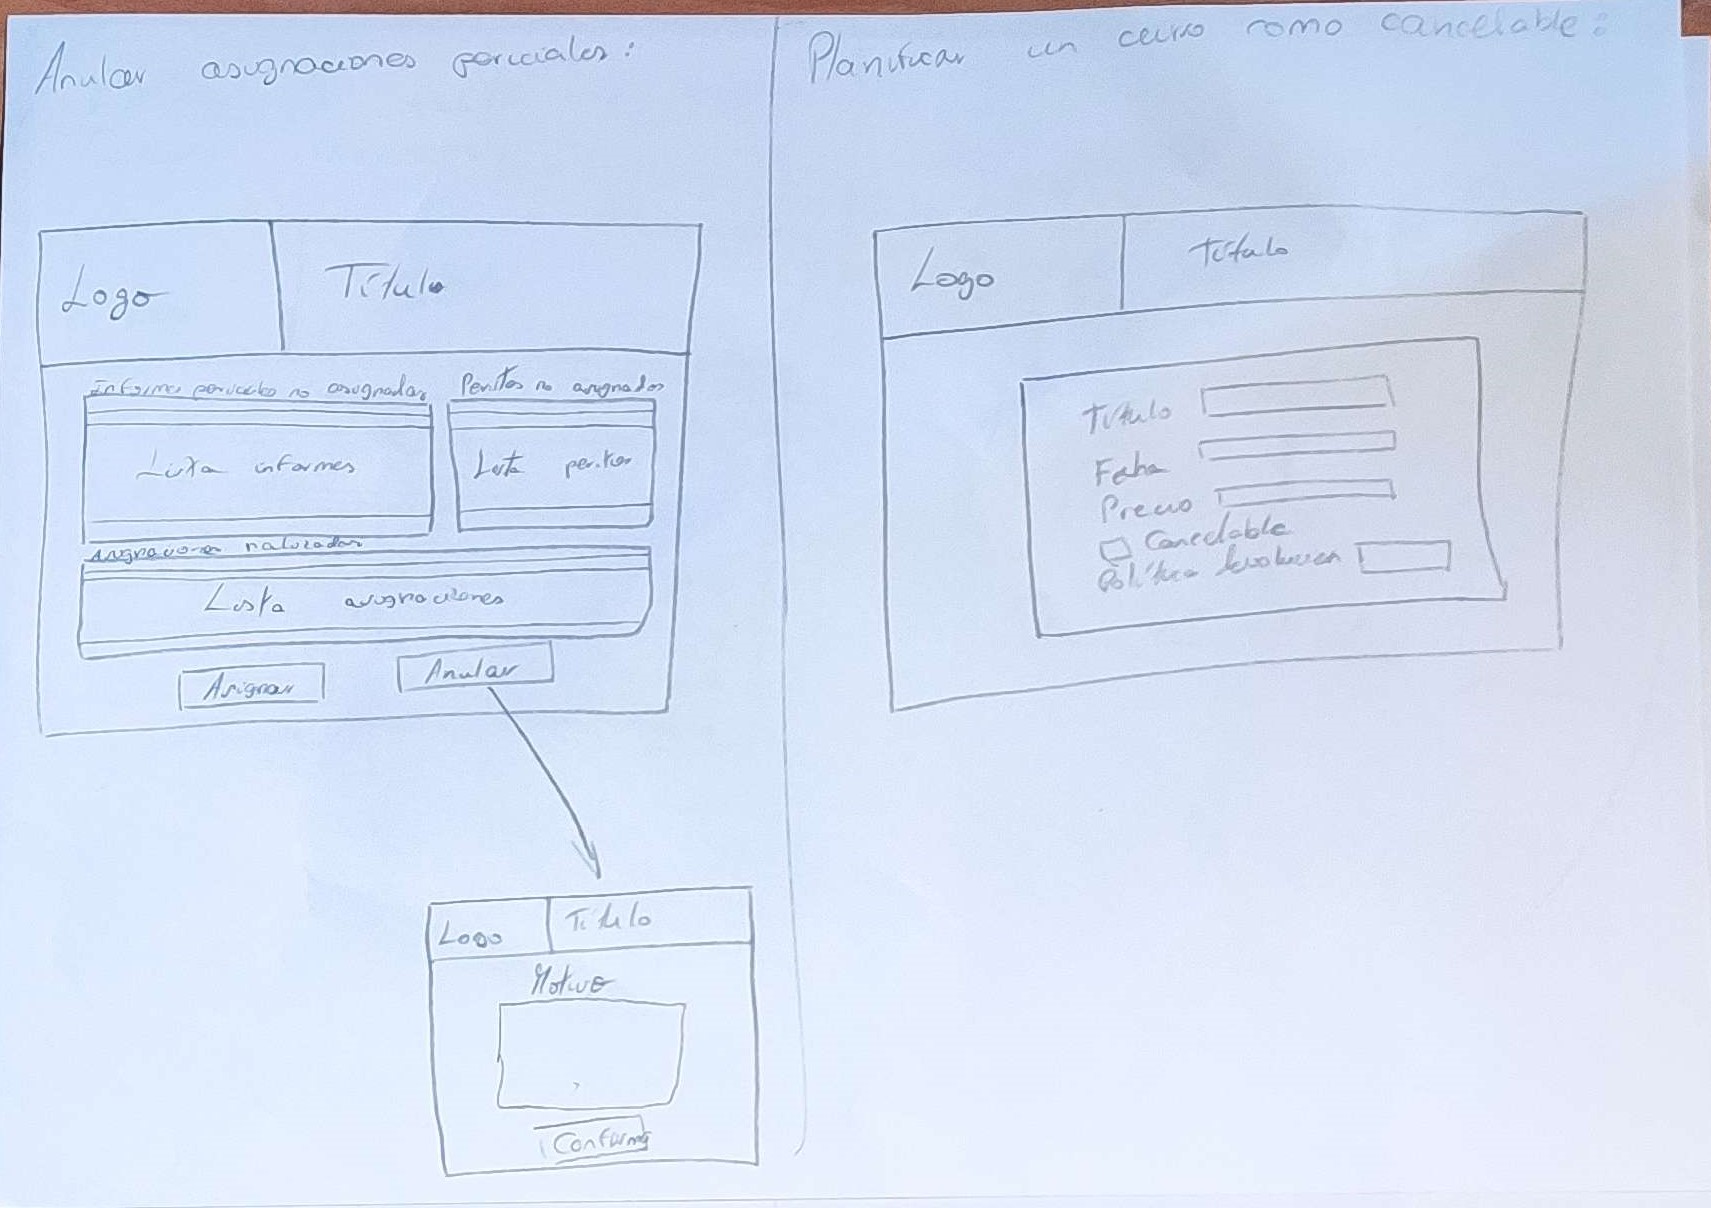 Anular asignaciones periciales:
Logo
Título
Informes periciales no asignados
Peritos no asignados
Lista informes
Lista peritos
Asignaciones realizadas
Lista asignaciones
Asignar
Anular
Logo
Título
Motivo
Confirma
Planificar un curso como cancelable:
Logo
Título
Título
Fecha
Precio
Cancelable
Política devolucion